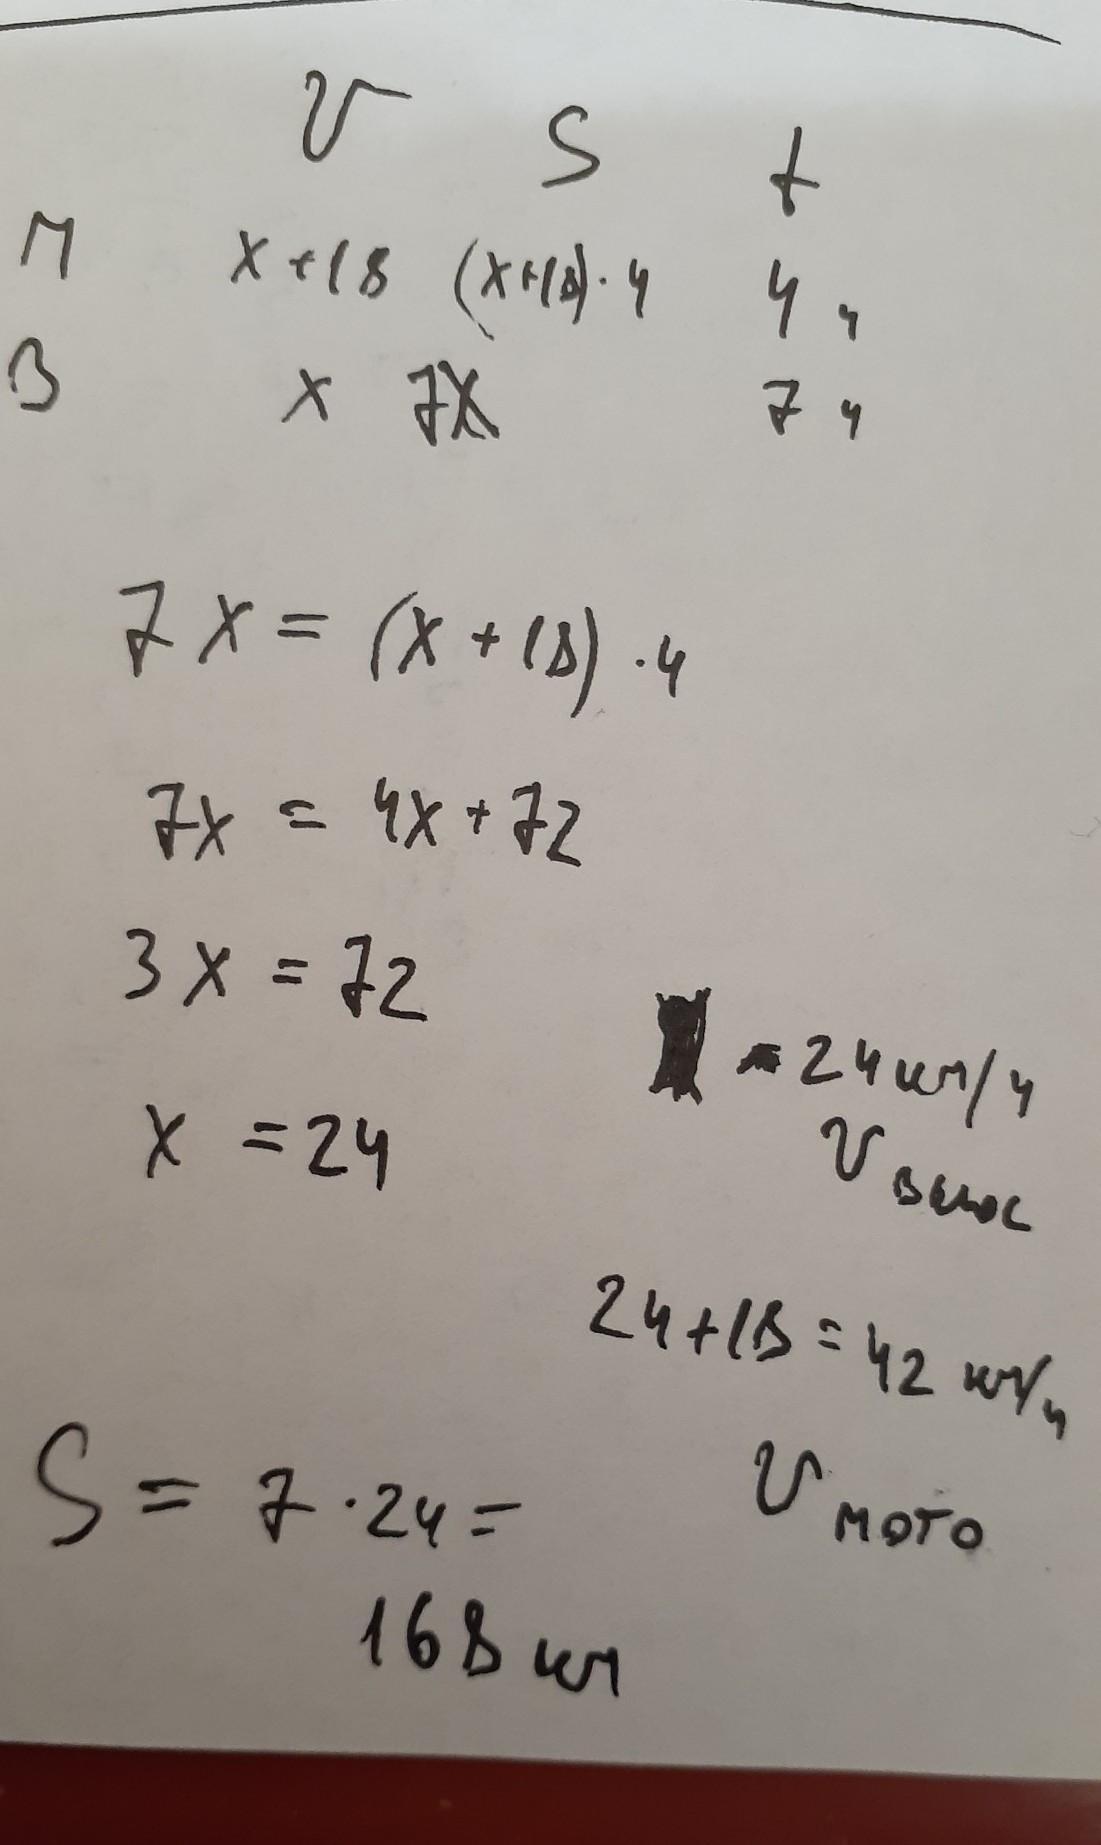 V S t
М x+18 (x+18)·4 4 ч
В x 7x 7 ч
7x = (x+18)·4
7x = 4x+72
3x = 72
x = 24
= 24 км/ч
V велос
24+18=42 км/ч
V мото
S = 7·24=
168 км